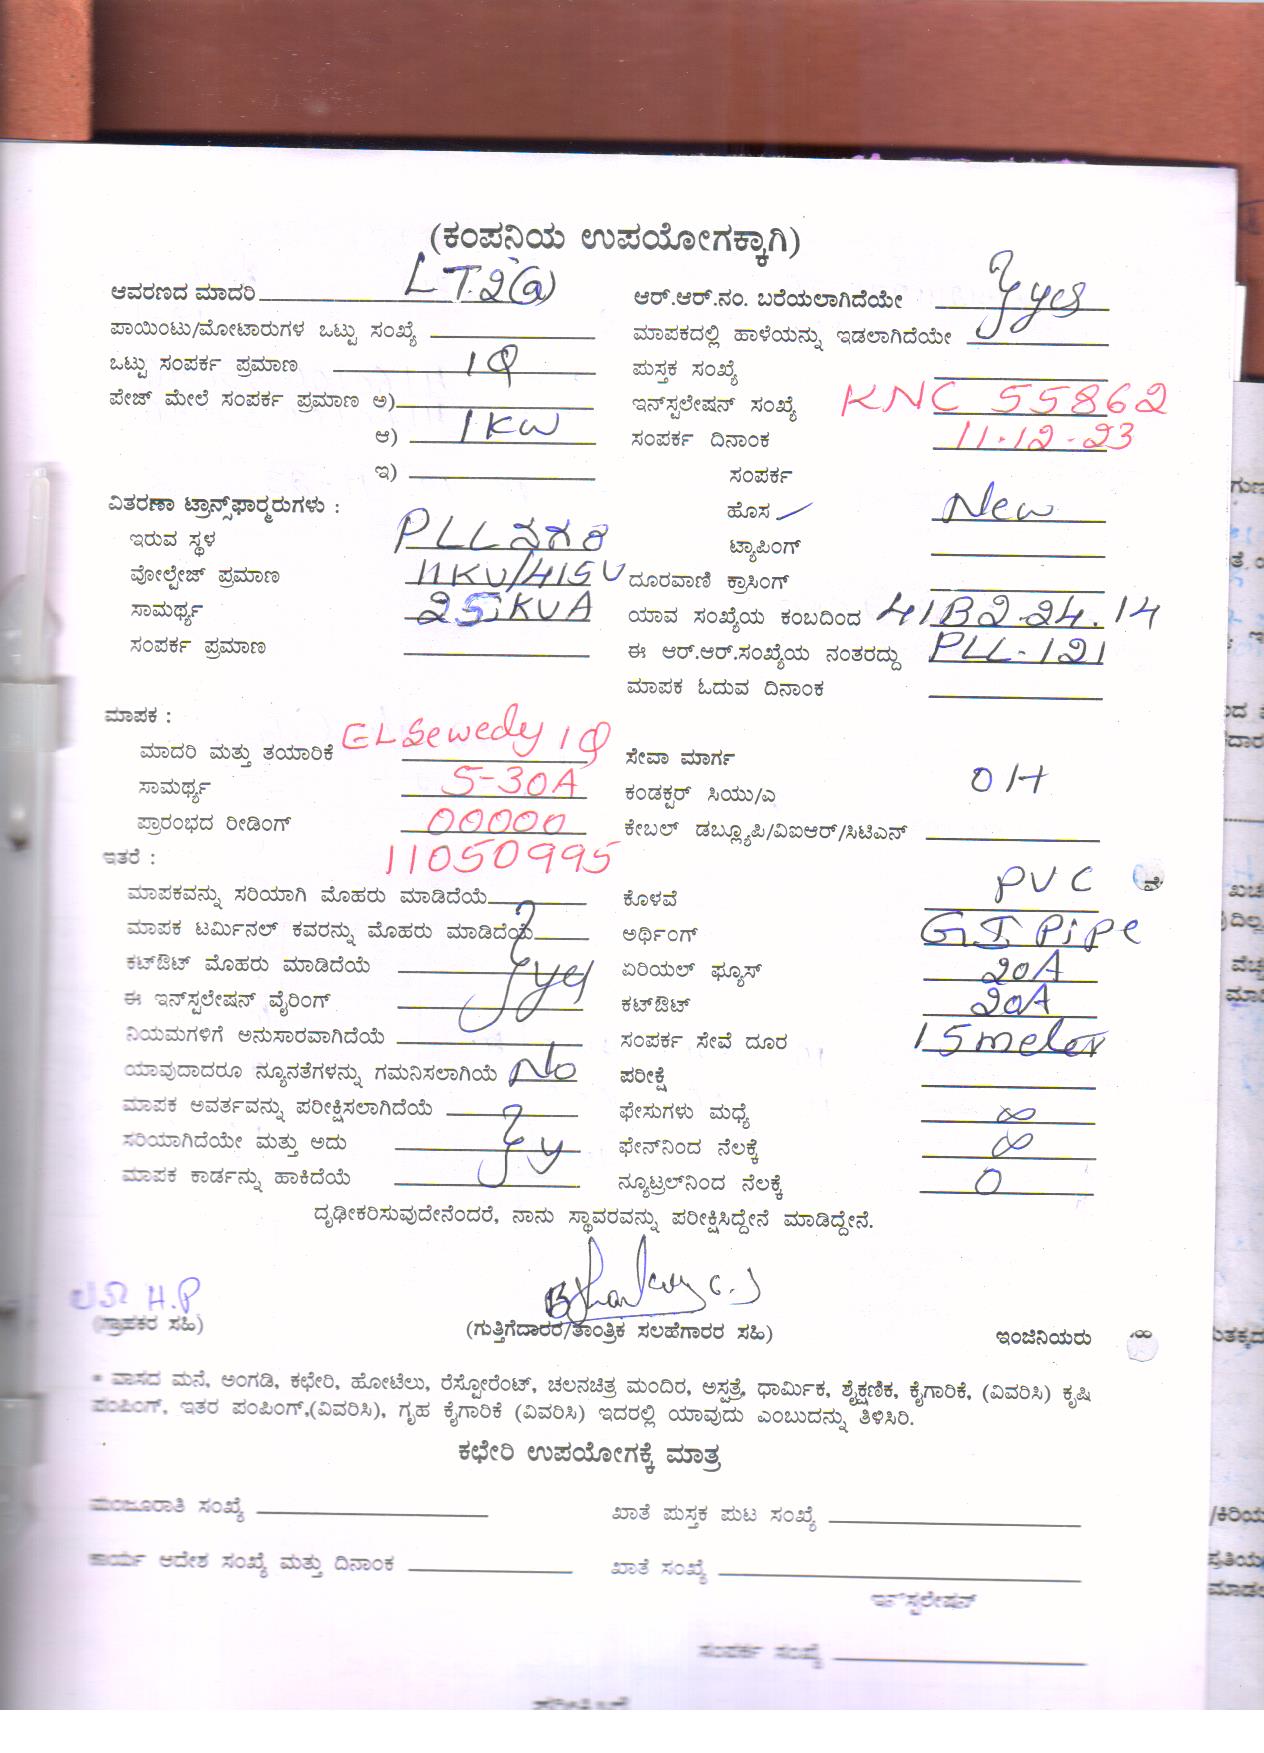 (ಕಂಪನಿಯ ಉಪಯೋಗಕ್ಕಾಗಿ)
ಆವರಣದ ಮಾದರಿ LT2(a) ಆರ್.ಆರ್.ನಂ. ಬರೆಯಲಾಗಿದೆಯೇ yes
ಪಾಯಿಂಟು/ಮೋಟಾರುಗಳ ಒಟ್ಟು ಸಂಖ್ಯೆ ಮಾಪಕದಲ್ಲಿ ಹಾಳೆಯನ್ನು ಇಡಲಾಗಿದೆಯೇ
ಒಟ್ಟು ಸಂಪರ್ಕ ಪ್ರಮಾಣ 1Φ ಪುಸ್ತಕ ಸಂಖ್ಯೆ
ಪೇಜ್ ಮೇಲೆ ಸಂಪರ್ಕ ಪ್ರಮಾಣ ಅ) ಇನ್‌ಸ್ಟಲೇಷನ್ ಸಂಖ್ಯೆ KNC 55862
ಆ) 1KW ಸಂಪರ್ಕ ದಿನಾಂಕ 11.12-23
ಇ) ಸಂಪರ್ಕ
ವಿತರಣಾ ಟ್ರಾನ್ಸ್‌ಫಾರ್ಮರುಗಳು : ಹೊಸ New
ಇರುವ ಸ್ಥಳ PLLನಗರ ಟ್ಯಾಪಿಂಗ್
ವೋಲ್ಟೇಜ್ ಪ್ರಮಾಣ 11KV/415V ದೂರವಾಣಿ ಕ್ರಾಸಿಂಗ್
ಸಾಮರ್ಥ್ಯ 25KVA ಯಾವ ಸಂಖ್ಯೆಯ ಕಂಬದಿಂದ 41B2-24.14
ಸಂಪರ್ಕ ಪ್ರಮಾಣ ಈ ಆರ್.ಆರ್.ಸಂಖ್ಯೆಯ ನಂತರದ್ದು PLL-121
ಮಾಪಕ ಓದುವ ದಿನಾಂಕ
ಮಾಪಕ :
ಮಾದರಿ ಮತ್ತು ತಯಾರಿಕೆ ELSewedy 1Φ ಸೇವಾ ಮಾರ್ಗ
ಸಾಮರ್ಥ್ಯ 5-30A ಕಂಡಕ್ಟರ್ ಸಿಯು/ಎ OH
ಪ್ರಾರಂಭದ ರೀಡಿಂಗ್ 00000 ಕೇಬಲ್ ಡಬ್ಲ್ಯೂಪಿ/ವಿಐಆರ್/ಸಿಟಿಎನ್
ಇತರೆ : 11050995
ಮಾಪಕವನ್ನು ಸರಿಯಾಗಿ ಮೊಹರು ಮಾಡಿದೆಯೆ ಕೊಳವೆ PVC
ಮಾಪಕ ಟರ್ಮಿನಲ್ ಕವರನ್ನು ಮೊಹರು ಮಾಡಿದೆಯೆ ಅರ್ಥಿಂಗ್ GI Pipe
ಕಟ್‌ಔಟ್ ಮೊಹರು ಮಾಡಿದೆಯೆ yes ಏರಿಯಲ್ ಫ್ಯೂಸ್ 20A
ಈ ಇನ್‌ಸ್ಟಲೇಷನ್ ವೈರಿಂಗ್ ಕಟ್‌ಔಟ್ 20A
ನಿಯಮಗಳಿಗೆ ಅನುಸಾರವಾಗಿದೆಯೆ ಸಂಪರ್ಕ ಸೇವೆ ದೂರ 15meter
ಯಾವುದಾದರೂ ನ್ಯೂನತೆಗಳನ್ನು ಗಮನಿಸಲಾಗಿಯೆ No ಪರೀಕ್ಷೆ
ಮಾಪಕ ಅವರ್ತವನ್ನು ಪರೀಕ್ಷಿಸಲಾಗಿದೆಯೆ ಫೇಸುಗಳು ಮಧ್ಯೆ ∞
ಸರಿಯಾಗಿದೆಯೇ ಮತ್ತು ಅದು ಫೇನ್‌ನಿಂದ ನೆಲಕ್ಕೆ ∞
ಮಾಪಕ ಕಾರ್ಡನ್ನು ಹಾಕಿದೆಯೆ ನ್ಯೂಟ್ರಲ್‌ನಿಂದ ನೆಲಕ್ಕೆ 0
ದೃಢೀಕರಿಸುವುದೇನೆಂದರೆ, ನಾನು ಸ್ಥಾವರವನ್ನು ಪರೀಕ್ಷಿಸಿದ್ದೇನೆ ಮಾಡಿದ್ದೇನೆ.
H.P
(ಗ್ರಾಹಕರ ಸಹಿ) (ಗುತ್ತಿಗೆದಾರರ/ತಾಂತ್ರಿಕ ಸಲಹೆಗಾರರ ಸಹಿ) ಇಂಜಿನಿಯರು
* ವಾಸದ ಮನೆ, ಅಂಗಡಿ, ಕಛೇರಿ, ಹೋಟೆಲು, ರೆಸ್ಟೋರೆಂಟ್, ಚಲನಚಿತ್ರ ಮಂದಿರ, ಅಸ್ಪತ್ರೆ, ಧಾರ್ಮಿಕ, ಶೈಕ್ಷಣಿಕ, ಕೈಗಾರಿಕೆ, (ವಿವರಿಸಿ) ಕೃಷಿ
ಪಂಪಿಂಗ್, ಇತರ ಪಂಪಿಂಗ್,(ವಿವರಿಸಿ), ಗೃಹ ಕೈಗಾರಿಕೆ (ವಿವರಿಸಿ) ಇದರಲ್ಲಿ ಯಾವುದು ಎಂಬುದನ್ನು ತಿಳಿಸಿರಿ.
ಕಛೇರಿ ಉಪಯೋಗಕ್ಕೆ ಮಾತ್ರ
ಮಂಜೂರಾತಿ ಸಂಖ್ಯೆ ಖಾತೆ ಪುಸ್ತಕ ಪುಟ ಸಂಖ್ಯೆ
ಕಾರ್ಯ ಆದೇಶ ಸಂಖ್ಯೆ ಮತ್ತು ದಿನಾಂಕ ಖಾತೆ ಸಂಖ್ಯೆ
ಇನ್‌ಸ್ಪಲೇಷನ್
ಸಂಪರ್ಕ ಸಂಖ್ಯೆ